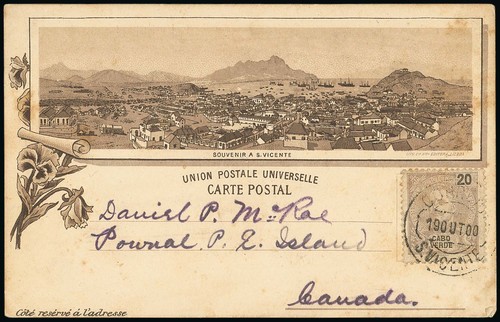 SOUVENIR A S. VICENTE
UNION POSTALE UNIVERSELLE
CARTE POSTAL
20
CABO
VERDE
19 OUT 00
S. VICENTE
Daniel P. McRae
Pownal P. E. Island
Canada.
Côté resérvé á l'adresse